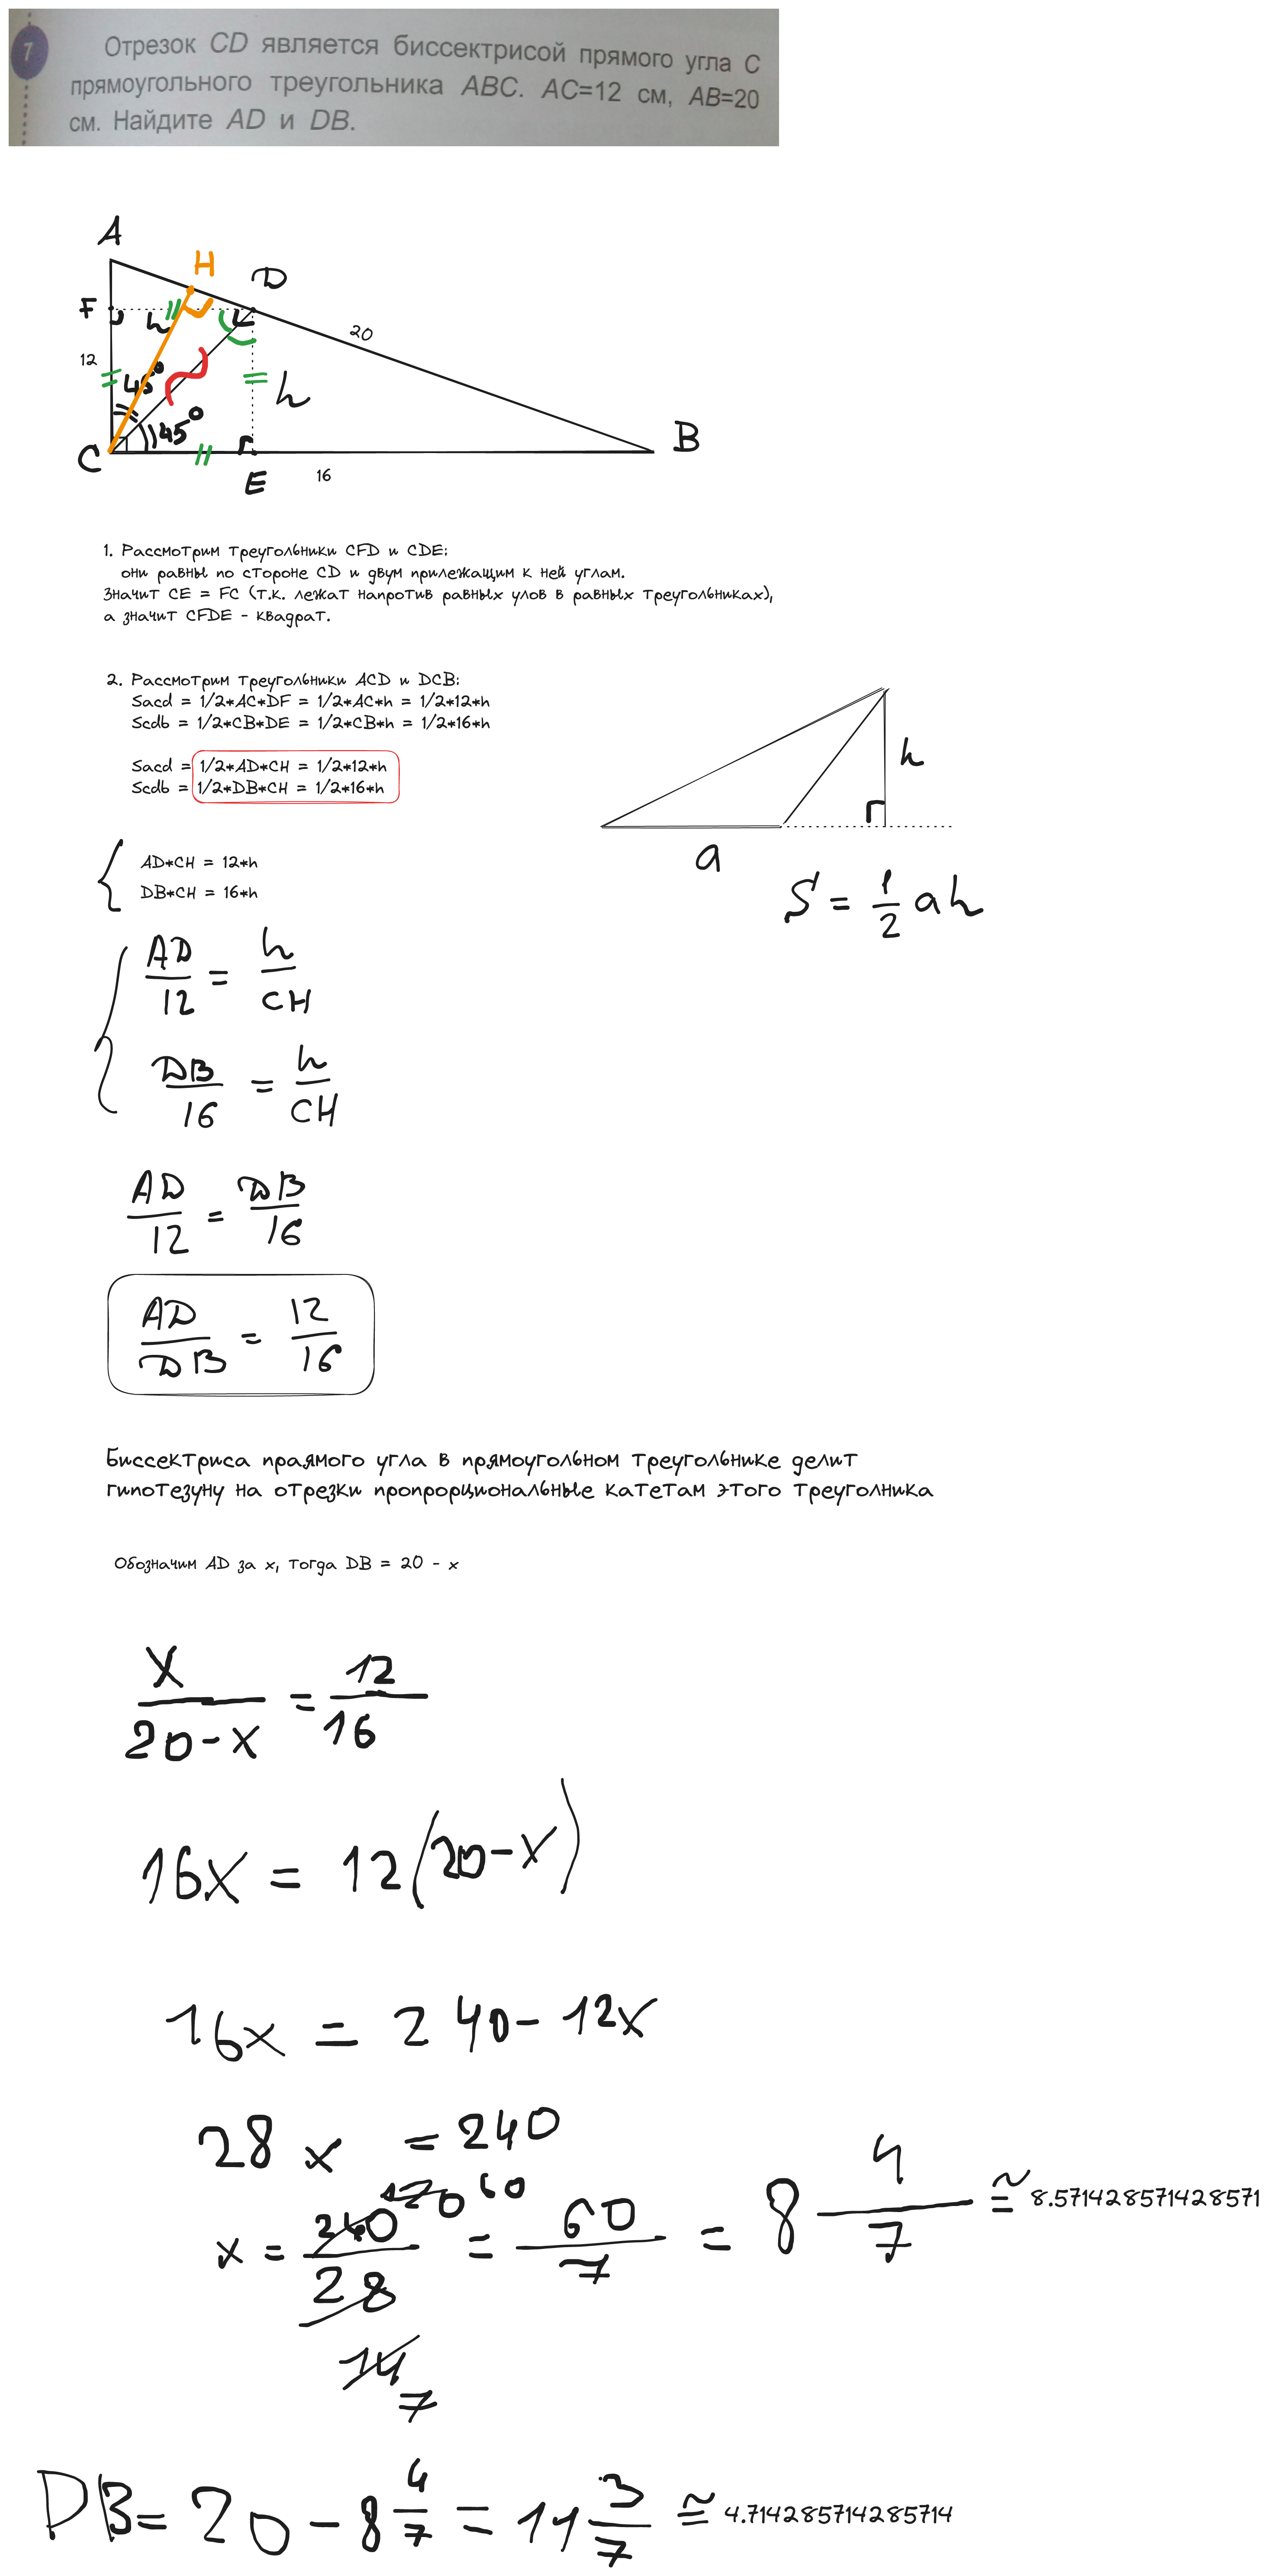 7
Отрезок CD является биссектрисой прямого угла C
прямоугольного треугольника ABC. AC=12 см, AB=20
см. Найдите AD и DB.
A
H
D
F
h
20
12
45°
h
45°
C
B
E
16
1. Рассмотрим треугольники CFD и CDE:
они равны по стороне CD и двум прилежащим к ней углам.
Значит CE = FC (т.к. лежат напротив равных улов в равных треугольниках),
а значит CFDE - квадрат.
2. Рассмотрим треугольники ACD и DCB:
Sacd = 1/2*AC*DF = 1/2*AC*h = 1/2*12*h
Scdb = 1/2*CB*DE = 1/2*CB*h = 1/2*16*h
Sacd = 1/2*AD*CH = 1/2*12*h
Scdb = 1/2*DB*CH = 1/2*16*h
h
a
S = 1/2 ah
AD*CH = 12*h
DB*CH = 16*h
AD/12 = h/CH
DB/16 = h/CH
AD/12 = DB/16
AD/DB = 12/16
Биссектриса праямого угла в прямоугольном треугольнике делит
гипотезуну на отрезки пропрорциональные катетам этого треуголника
Обозначим AD за x, тогда DB = 20 - x
x/20-x = 12/16
16x = 12(20-x)
16x = 240-12x
28x = 240
x = 240/28 120 60 14 7 = 60/7 = 8 4/7 ≅ 8.571428571428571
DB = 20 - 8 4/7 = 11 3/7 ≅ 4.714285714285714